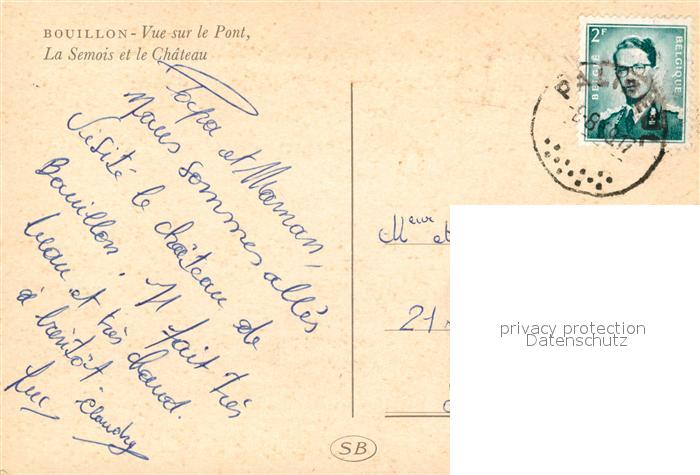 BOUILLON - Vue sur le Pont,
La Semois et le Château
Papa et Maman,
Nous sommes allés
visité le château de
Bouillon. Il fait très
beau et très chaud.
à bientôt
Luc Claudy
2F
BELGIË
BELGIQUE
Meur et
21
privacy protection
Datenschutz
SB